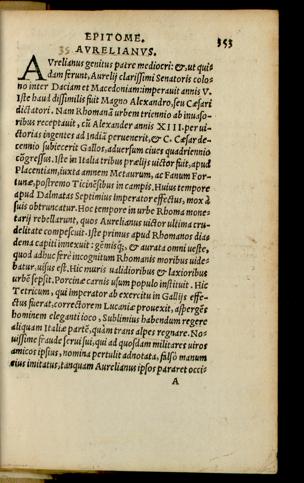 EPITOME.
353
35 AVRELIANVS.
AVrelianus genitus patre mediocri: &, ut qui-
dam ferunt, Aurelij clarissimi Senatoris colo-
no inter Daciam et Macedoniam: imperauit annis V.
Iste haud dissimilis fuit Magno Alexandro, seu Cæsari
dictatori. Nam Rhomanā urbem triennio ab inuaso-
ribus receptauit, cū Alexander annis XIII. per ui-
ctorias ingentes ad Indiā peruenerit, & C. Cæsar de-
cennio subiecerit Gallos, aduersum ciues quadriennio
cōgressus. Iste in Italia tribus prælijs uictor fuit, apud
Placentiam, iuxta amnem Metaurum, ac Fanum For-
tunæ, postremo Ticinēsibus in campis. Huius tempore
apud Dalmatas Septimius imperator effectus, mox à
suis obtruncatur. Hoc tempore in urbe Rhoma mone-
tarij rebellarunt, quos Aurelianus uictor ultima cru-
delitate compescuit. Iste primus apud Rhomanos dia
dema capiti innexuit: gēmisq́;, & aurata omni ueste,
quod adhuc ferè incognitum Rhomanis moribus uide-
batur, uisus est. Hic muris ualidioribus & laxioribus
urbē sepsit. Porcinæ carnis usum populo instituit. Hic
Tetricum, qui imperator ab exercitu in Gallijs effe-
ctus fuerat, correctorem Lucaniæ prouexit, aspergēs
hominem eleganti ioco, Sublimius habendum regere
aliquam Italiæ partē, quàm trans alpes regnare. No-
uissime fraude serui sui, qui ad quosdam militares uiros
amicos ipsius, nomina pertulit adnotata, falsò manum
eius imitatus, tanquam Aurelianus ipsos pararet occi-
A